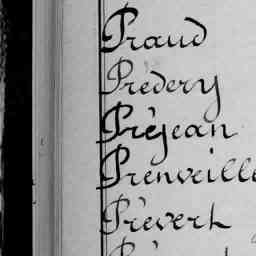 Praud
Prédery
Préjean
Prenveille
Prévert